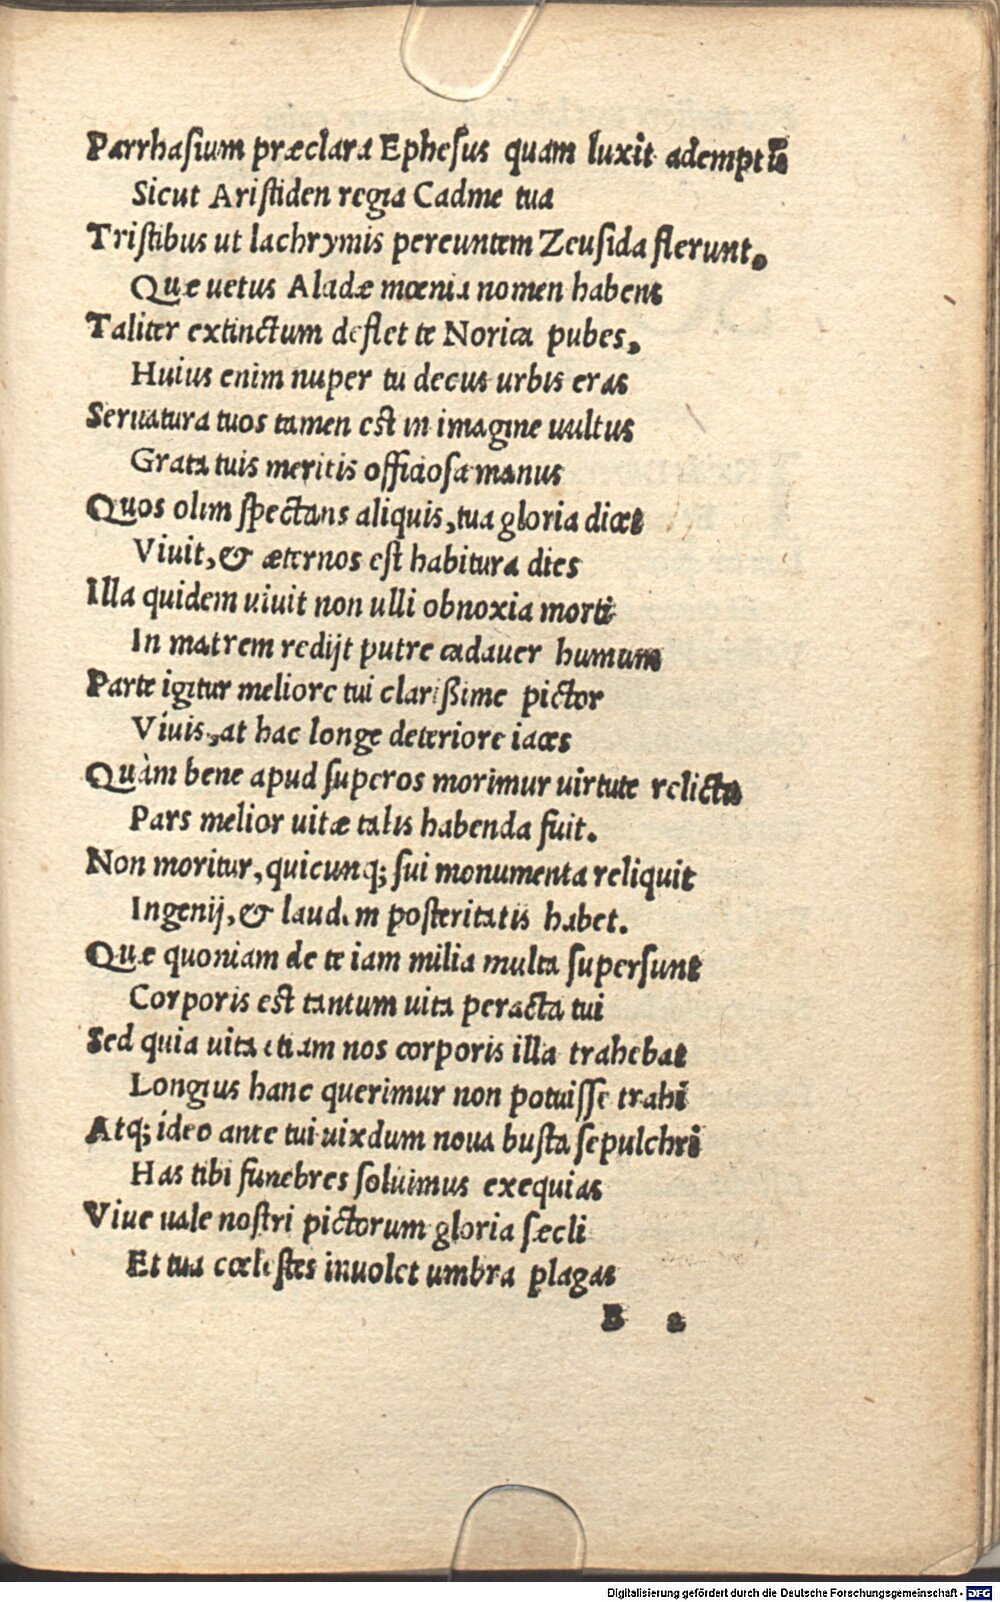 Parrhaſium præclara Epheſus quam luxit ademptũ
Sicut Ariſtiden regia Cadme tua
Triſtibus ut lachrymis pereuntem Zeuſida flerunt.
Quæ uetus Aladæ mœnia nomen habent
Taliter extinctum deflet te Norica pubes,
Huius enim nuper tu decus urbis eras
Seruatura tuos tamen est in imagine uultus
Grata tuis meritis officiosa manus
Quos olim ſpectans aliquis, tua gloria dicet
Viuit, & æternos eſt habitura dies
Illa quidem uiuit non ulli obnoxia morti
In matrem redijt putre cadauer humum
Parte igitur meliore tui clarißime pictor
Viuis, at hac longe deteriore iaces
Quàm bene apud ſuperos morimur uirtute relicta
Pars melior uitæ talis habenda fuit.
Non moritur, quicunq; ſui monumenta reliquit
Ingenij, & laudem poſteritatis habet.
Quæ quoniam de te iam milia multa ſuperſunt
Corporis est tantum uita peracta tui
Sed quia uita etiam nos corporis illa trahebat
Longius hanc querimur non potuiſſe trahi
Atq; ideo ante tui uixdum noua buſta ſepulchri
Has tibi funebres ſoluimus exequias
Viue uale noſtri pictorum gloria ſæcli
Et tua cœleſtes inuolet umbra plagas
B 2
Digitalisierung gefördert durch die Deutsche Forschungsgemeinschaft - DFG